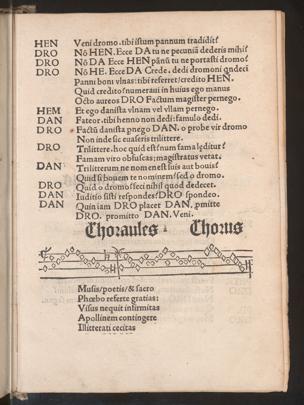 HEN Veni dromo. tibi istum pannum tradidit?
DRO Nō HEN. Ecce DA tu ne pecuniā dederis mihi?
DRO Nō DA Ecce HEN pānū tu ne portasti dromo?
DRO Nō HE. Ecce DA Crede. dedi dromoni qndeci
Panni boni vlnas: tibi referret/credito HEN.
Quid credito? numeraui in huius ego manus
Octo aureos DRO Factum magister pernego.
HEM Et ego danista vlnam vel vllam pernego.
DAN Fateor. tibi henno non dedi: famulo dedi.
DRO Factū danista pnego DAN. o probe vir dromo
Non inde sic euaseris trilittere.
DRO Trilittere. hoc quid est? num fama lęditur?
Famam viro obfuscas: magistratus vetat.
DAN Trilitterum ne nomen est luis aut bouis?
Quid si bouem te nominem? sed o dromo.
DRO Quid o dromo? feci nihil quod dedecet.
DAN In iuditio sisti respondes? DRO spondeo.
DAN Quin iam DRO placet DAN. pmitte
DRO. promitto DAN. Veni.
Choraules Chorus
Musis/poetis/& sacro
Phœbo referte gratias:
Visus nequit infirmitas
Apollinem contingere
Illitterati cecitas